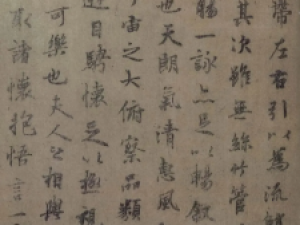 帶左右引以為流
其次雖無絲竹管
觴一詠亦足以暢敘
也天朗氣清惠風
宙之大俯察品類
遊目騁懷足以極視
可樂也夫人之相與
取諸懷抱悟言一